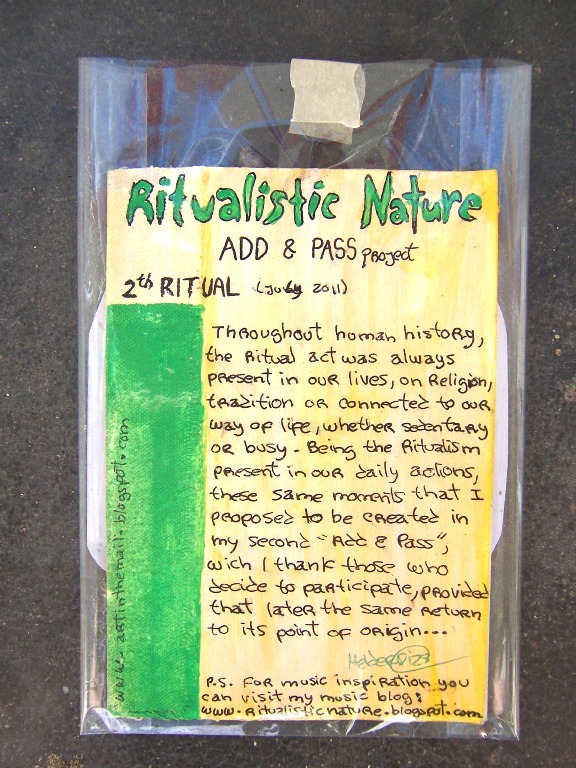 Ritualistic Nature
ADD & PASS PROJECT
2th RITUAL (July 2011)
Throughout human history,
the Ritual act was always
present in our lives, on Religion,
tradition or connected to our
way of life, whether sedentary
or busy. Being the Ritualism
present in our daily actions,
these same moments that I
proposed to be created in
my second "Add & Pass",
wich I thank those who
decide to participate, provided
that later the same return
to its point of origin...
P.S. For music inspiration you
can visit my music blog:
www.Ritualisticnature.blogspot.com
www.artinthemail.blogspot.com